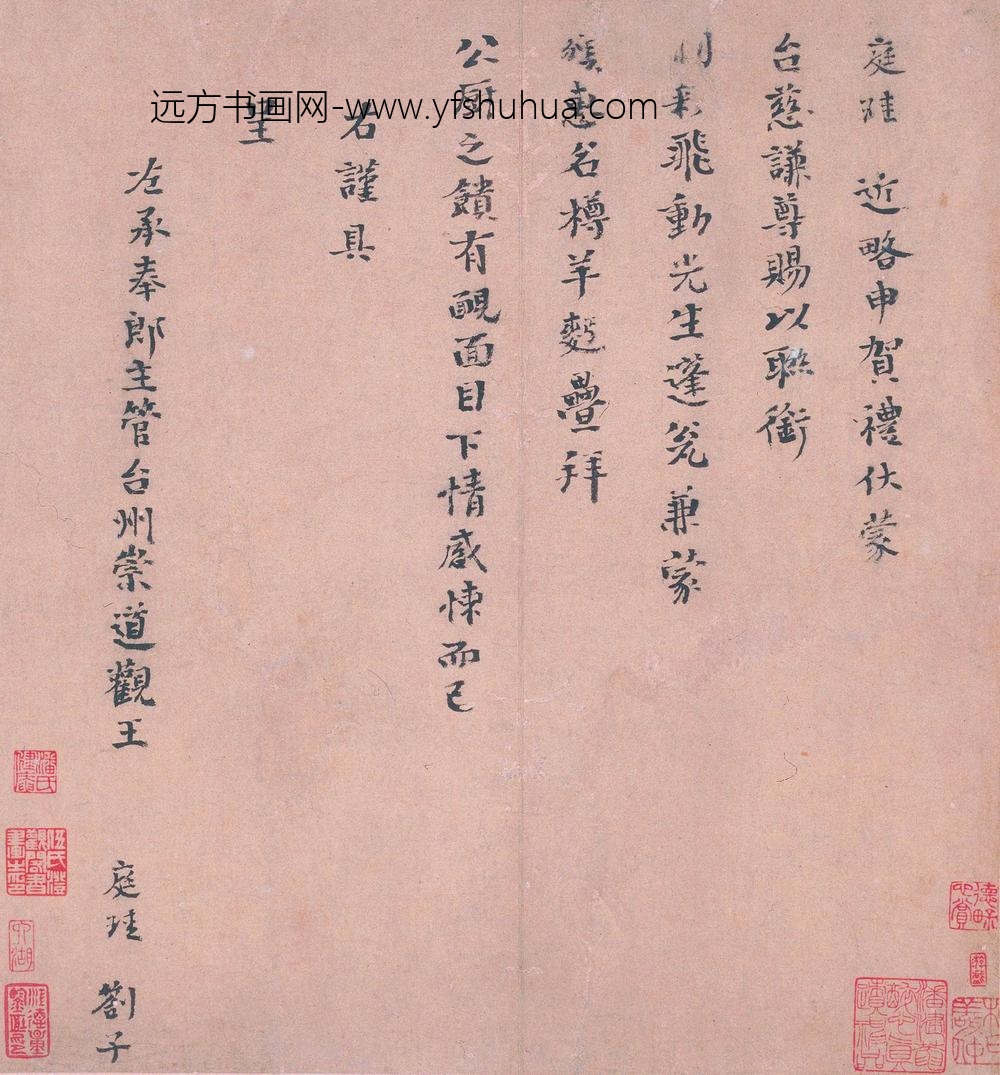 庭珪近略申賀禮伏蒙
台慈謙尊賜以聯銜
彩飛動光生蓬瓮兼蒙
惠名樽羊麪疊拜
公厨之饋有靦面目下情感悚而已
右謹具
呈
左承奉郎主管台州崇道觀王庭珪劄子
远方书画网-www.yfshuhua.com